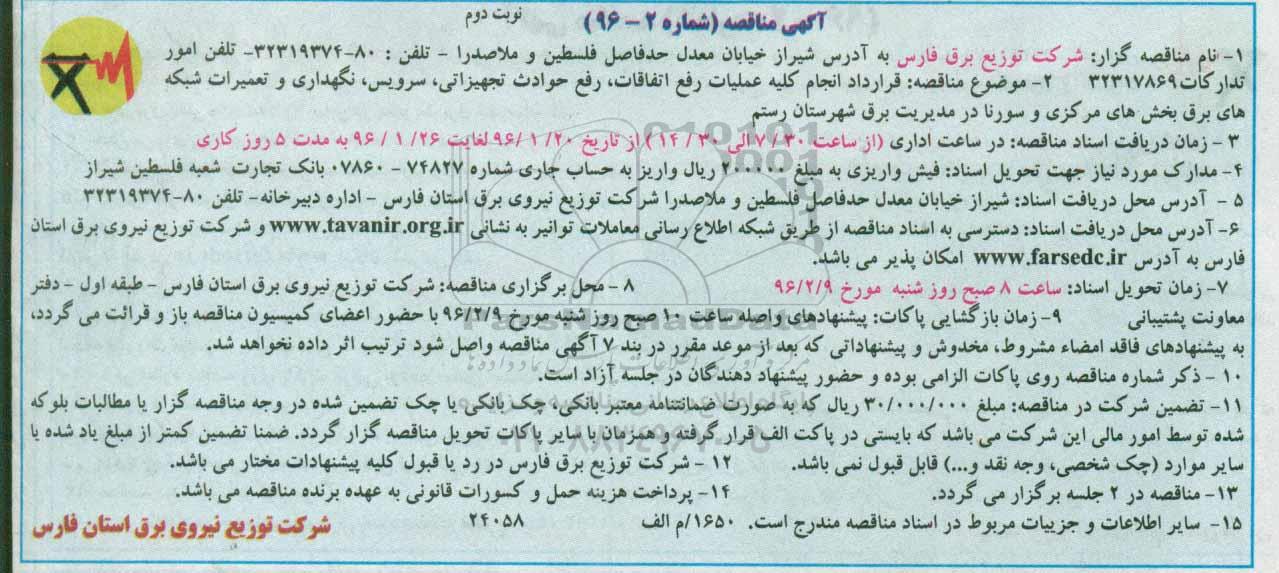 آگهی مناقصه (شماره ۲ – ۹۶)
نوبت دوم
۱- نام مناقصه گزار: شرکت توزیع برق فارس به آدرس شیراز خیابان معدل حدفاصل فلسطین و ملاصدرا - تلفن : ۸۰-۳۲۳۱۹۳۷۴- تلفن امور
تدارکات۳۲۳۱۷۸۶۹ ۲- موضوع مناقصه: قرارداد انجام کلیه عملیات رفع اتفاقات، رفع حوادث تجهیزاتی، سرویس، نگهداری و تعمیرات شبکه
های برق بخش های مرکزی و سورنا در مدیریت برق شهرستان رستم
۳ - زمان دریافت اسناد مناقصه: در ساعت اداری (از ساعت ۳۰ / ۷ الی ۳۰ / ۱۴ ) از تاریخ ۲۰/ ۱ /۹۶ لغایت ۲۶/ ۱ / ۹۶ به مدت ۵ روز کاری
۴- مدارک مورد نیاز جهت تحویل اسناد: فیش واریزی به مبلغ ۲۰۰۰۰۰ ریال واریز به حساب جاری شماره ۷۴۸۲۷ - ۰۷۸۶۰ بانک تجارت شعبه فلسطین شیراز
۵ - آدرس محل دریافت اسناد: شیراز خیابان معدل حدفاصل فلسطین و ملاصدرا شرکت توزیع نیروی برق استان فارس - اداره دبیرخانه- تلفن ۸۰-۳۲۳۱۹۳۷۴
۶- آدرس محل دریافت اسناد: دسترسی به اسناد مناقصه از طریق شبکه اطلاع رسانی معاملات توانیر به نشانی www.tavanir.org.ir و شرکت توزیع نیروی برق استان
فارس به آدرس www.farsedc.ir امکان پذیر می باشد.
۷- زمان تحویل اسناد: ساعت ۸ صبح روز شنبه مورخ ۹۶/۲/۹ ۸ - محل برگزاری مناقصه: شرکت توزیع نیروی برق استان فارس - طبقه اول - دفتر
معاونت پشتیبانی ۹- زمان بازگشایی پاکات: پیشنهادهای واصله ساعت ۱۰ صبح روز شنبه مورخ ۹۶/۲/۹ با حضور اعضای کمیسیون مناقصه باز و قرائت می گردد،
به پیشنهادهای فاقد امضاء مشروط، مخدوش و پیشنهاداتی که بعد از موعد مقرر در بند ۷ آگهی مناقصه واصل شود ترتیب اثر داده نخواهد شد.
۱۰ - ذکر شماره مناقصه روی پاکات الزامی بوده و حضور پیشنهاد دهندگان در جلسه آزاد است.
۱۱- تضمین شرکت در مناقصه: مبلغ ۳۰/۰۰۰/۰۰۰ ریال که به صورت ضمانتنامه معتبر بانکی، چک بانکی یا چک تضمین شده در وجه مناقصه گزار یا مطالبات بلوکه
شده توسط امور مالی این شرکت می باشد که بایستی در پاکت الف قرار گرفته و همزمان با سایر پاکات تحویل مناقصه گزار گردد. ضمنا تضمین کمتر از مبلغ یاد شده یا
سایر موارد (چک شخصی، وجه نقد و...) قابل قبول نمی باشد. ۱۲ - شرکت توزیع برق فارس در رد یا قبول کلیه پیشنهادات مختار می باشد.
۱۳- مناقصه در ۲ جلسه برگزار می گردد. ۱۴- پرداخت هزینه حمل و کسورات قانونی به عهده برنده مناقصه می باشد.
۱۵- سایر اطلاعات و جزییات مربوط در اسناد مناقصه مندرج است. ۱۶۵۰/م الف ۲۴۰۵۸
شرکت توزیع نیروی برق استان فارس
ParsNamadData